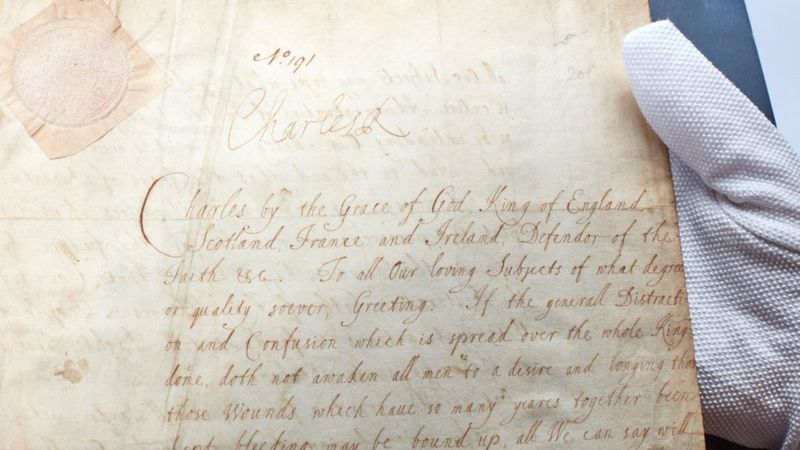 No 191
Charles R
Charles by the Grace of God, King of England,
Scotland, France and Ireland, Defendor of the
Faith &c. To all Our loving Subjects of what degree
or quality soever, Greeting. If the generall Distracti
on and Confusion which is spread over the whole King
dome, doth not awaken all men to a desire and longing that
those Wounds which have so many yeares together been
kept bleeding may be bound up, all We can say will